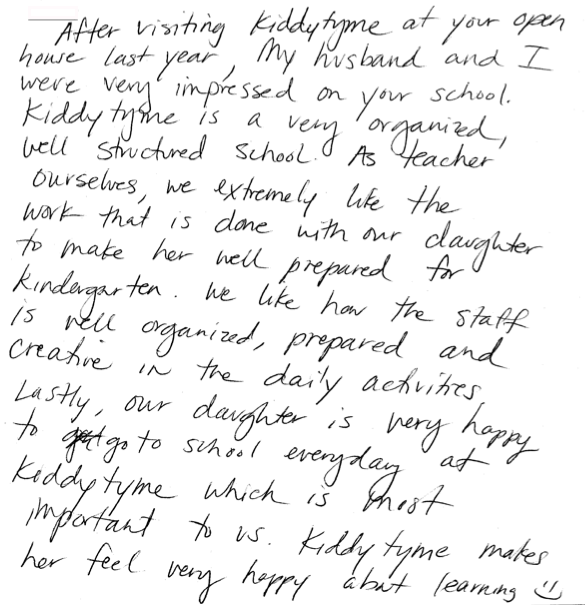 After visiting Kiddytyme at your open
house last year, My husband and I
were very impressed on your school.
Kiddytyme is a very organized,
well structured school. As teacher
ourselves, we extremely like the
work that is done with our daughter
to make her well prepared for
Kindergarten. We like how the staff
is well organized, prepared and
creative in the daily activities.
Lastly, our daughter is very happy
to go to school everyday at
Kiddytyme which is most
important to us. Kiddytyme makes
her feel very happy about learning